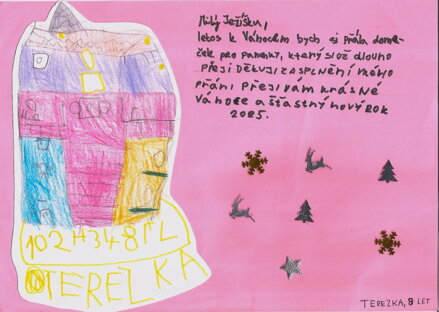 Milý Ježíšku,
letos k Vánocům bych si přála dome-
ček pro panenky, který si už dlouho
přeji Děkuji za splnění mého
přání Přeji vám krásné
Vánoce a šťastný nový rok
2025.
TEREZKA
TEREZKA, 8 LET